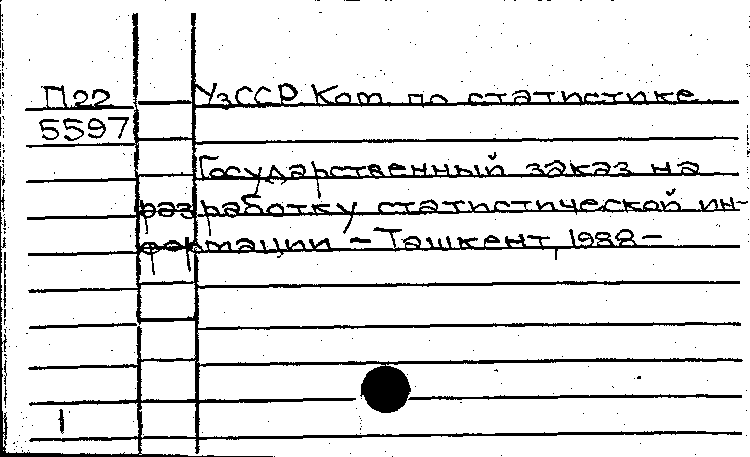 П22 УзССР Ком. по статистике
5597
Государственный заказ на
разработку статистической ин-
формации - Ташкент, 1988-
1